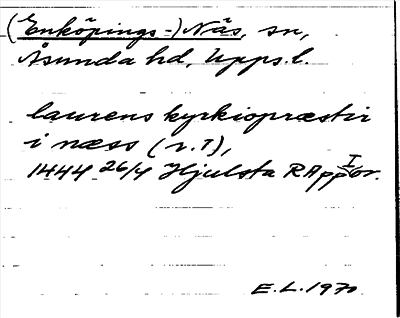 (Enköpings-)Näs, sn,
Åsunda hd, Upps.l.
laurens kyrkiopræstir
i næss (r.1),
1444 26/4 Hjulsta RApp I or.
E.L. 1970